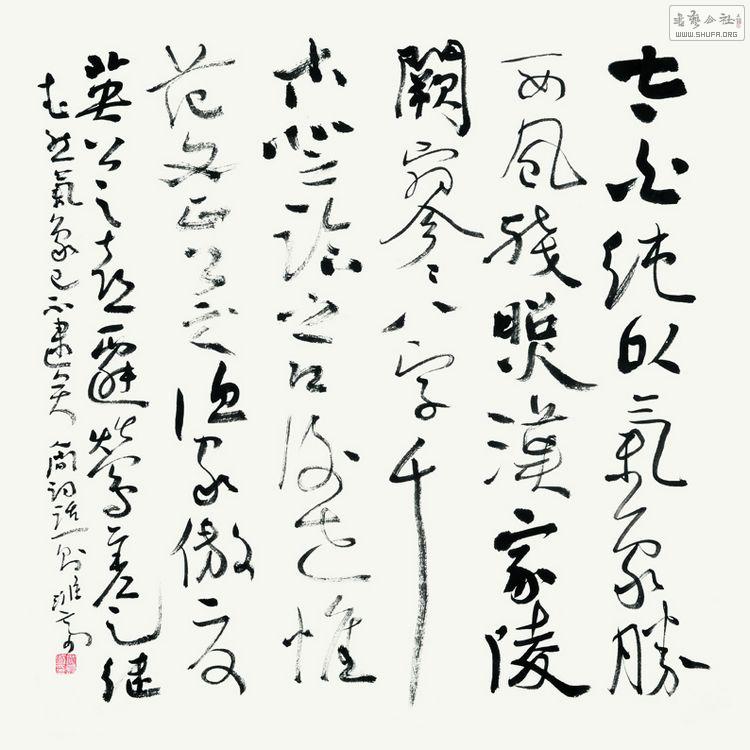 太白純以氣象勝
西風殘照漢家陵
闕寥〻八字千
古登臨之口後世惟
范文正公之漁家傲夏
英公之喜遷鶯差足繼
武然氣象已不逮矣 詞話一則
書藝公社
WWW.SHUFA.ORG